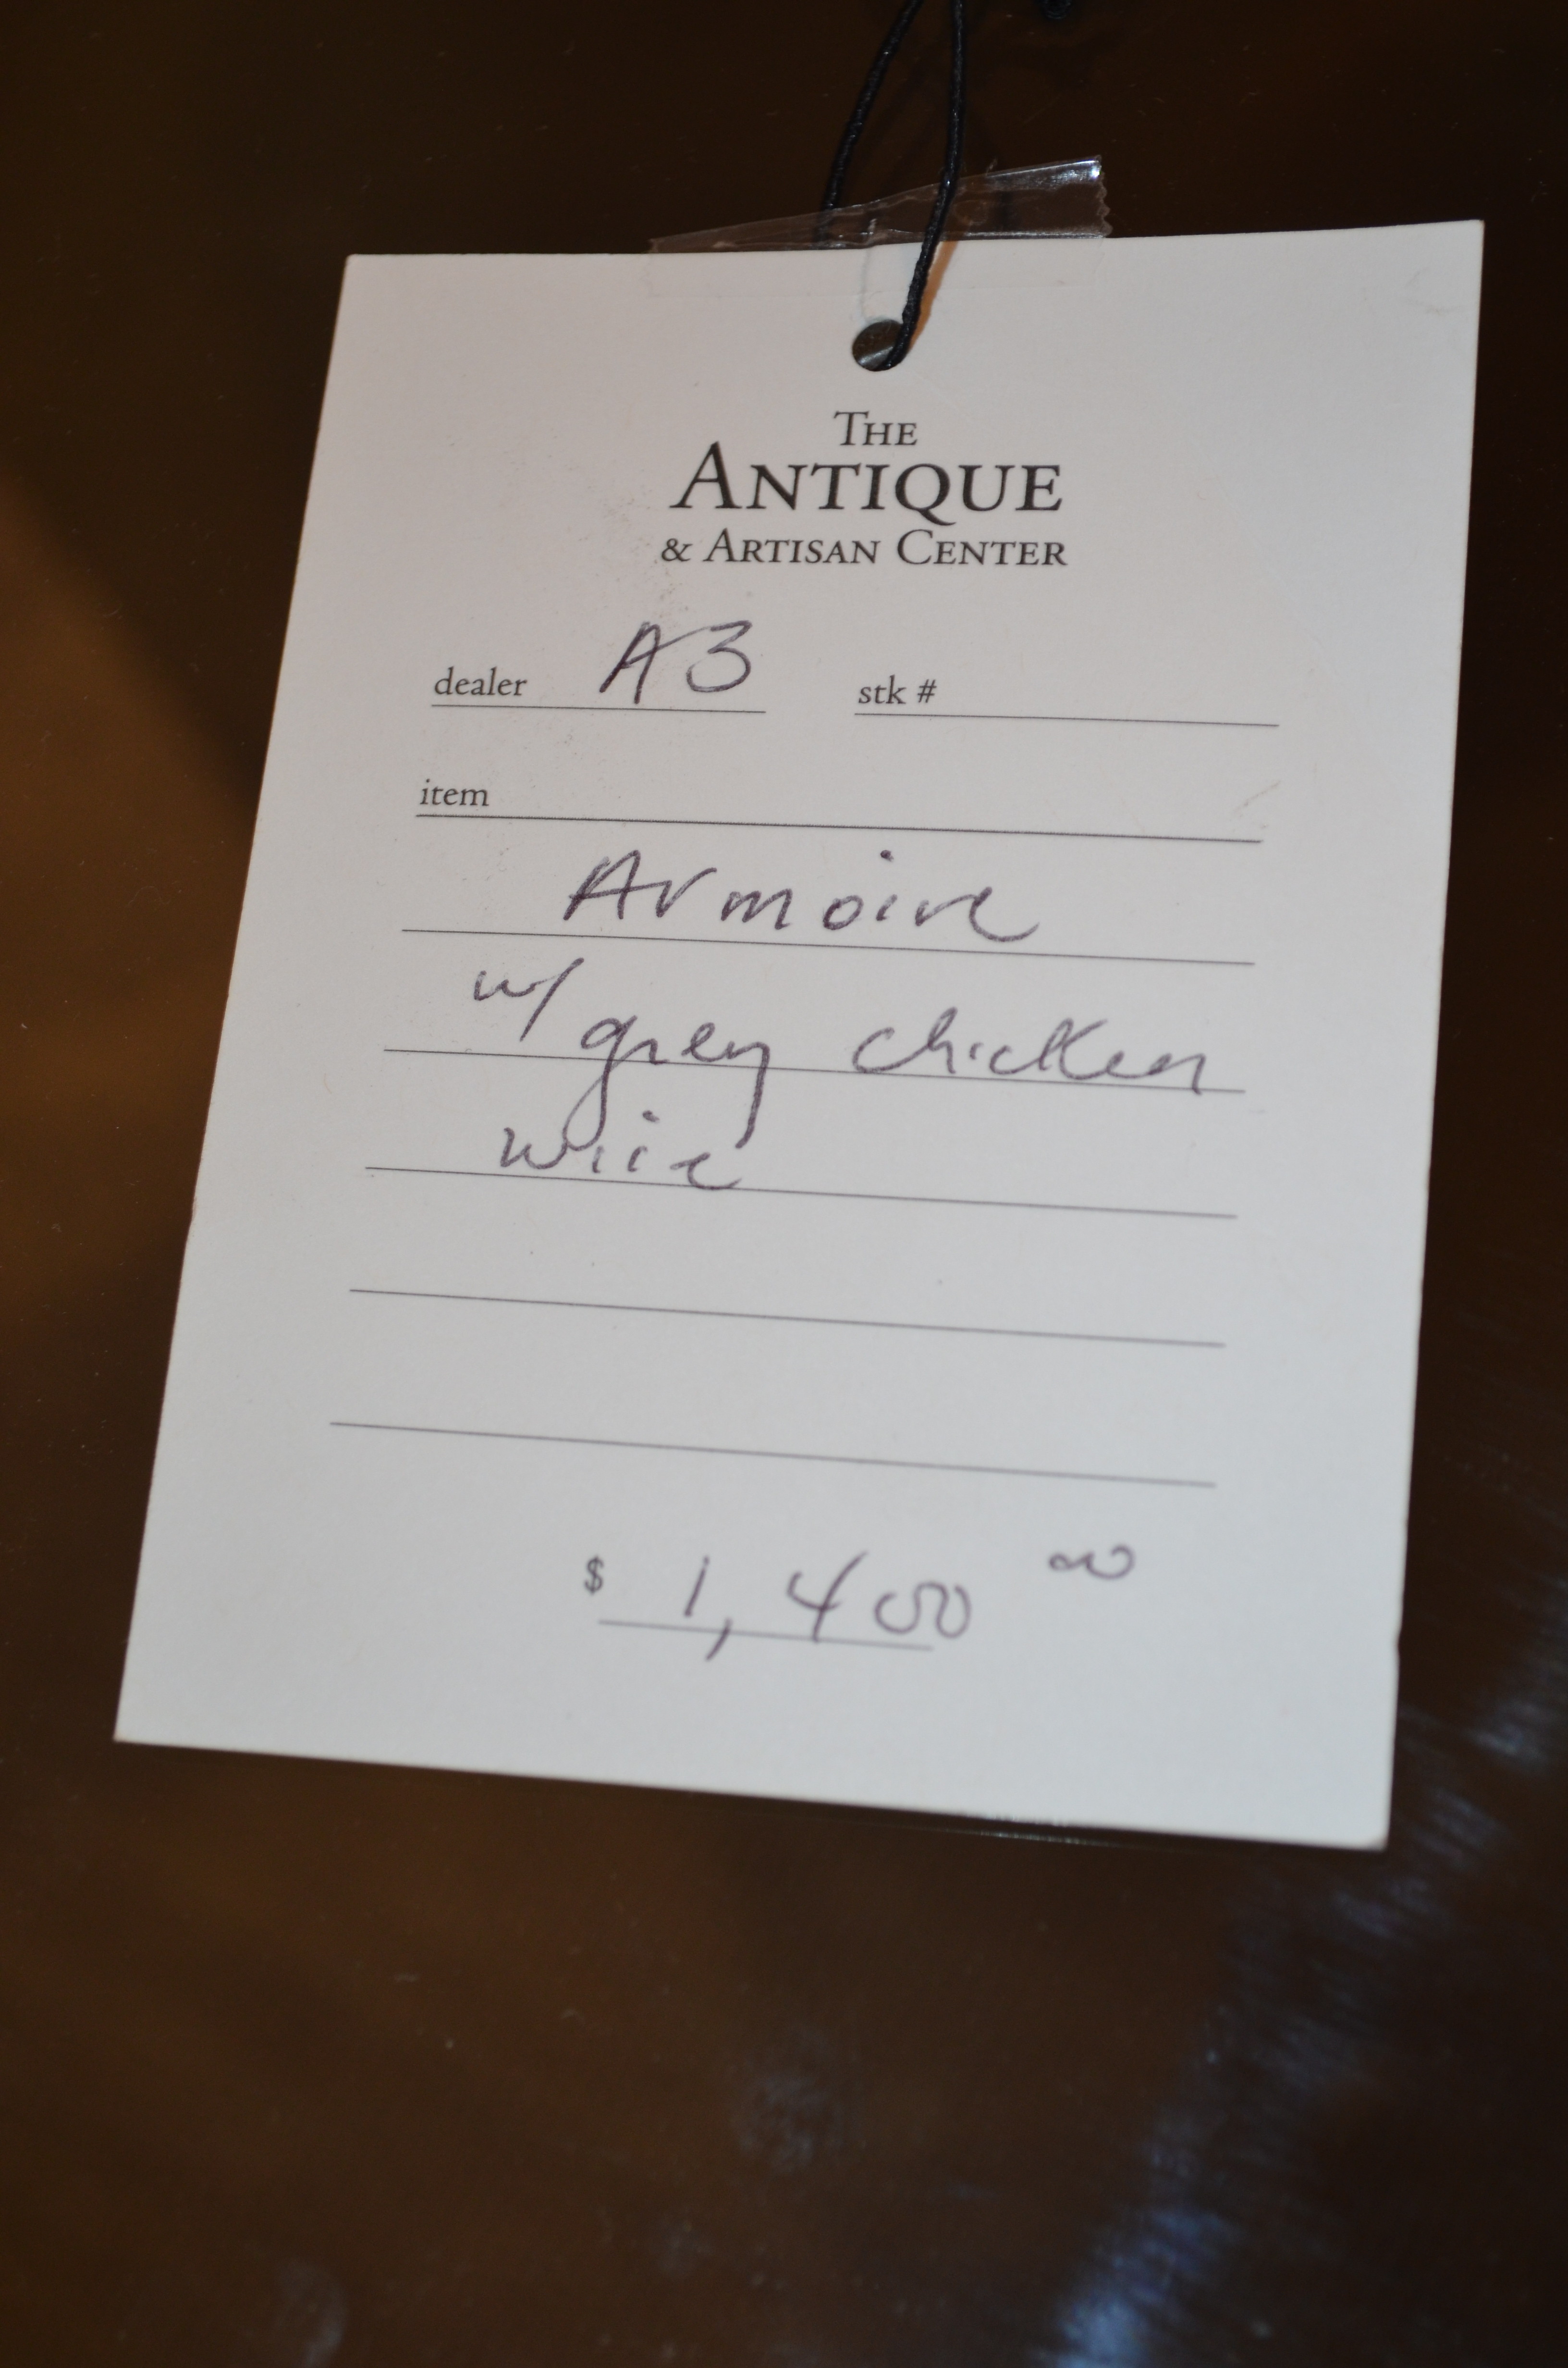 THE
ANTIQUE
& ARTISAN CENTER
dealer A3 stk #
item
Armoire
w/ grey chicken
wire
$ 1,400 00